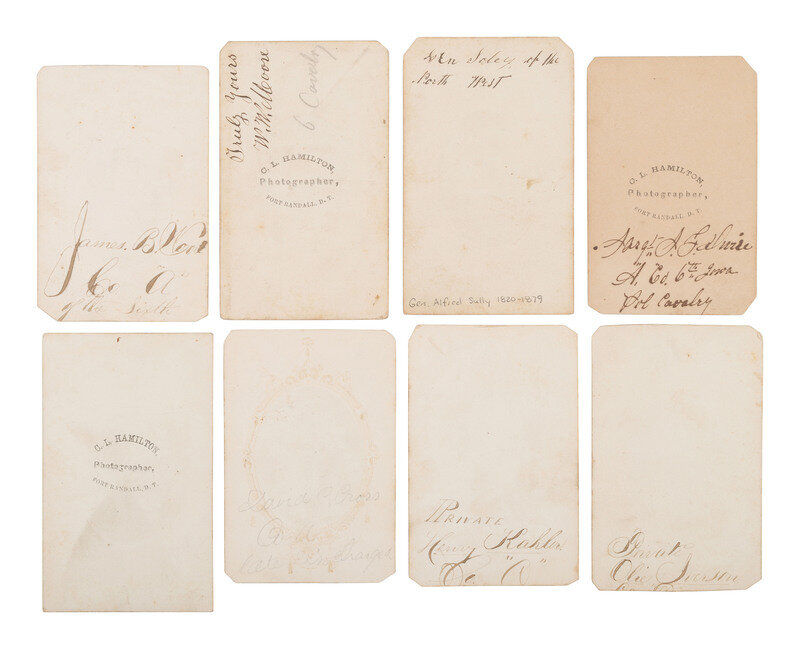 James. B.
Co "A"
of the Sixth
Truly Yours
W. H. Moore
6 Cavalry
C. L. HAMILTON,
Photographer,
FORT RANDALL, D. T.
of the
North West
Gen. Alfred Sully 1820-1879
C. L. HAMILTON,
Photographer,
FORT RANDALL, D. T.
Sargt A. F.
A. Co. 6th Iowa
Vol Cavalry
C. L. HAMILTON,
Photographer,
FORT RANDALL, D. T.
David C. Cross
PRIVATE
Henry Kahler
Co. "A"
Private
Ole Iverson